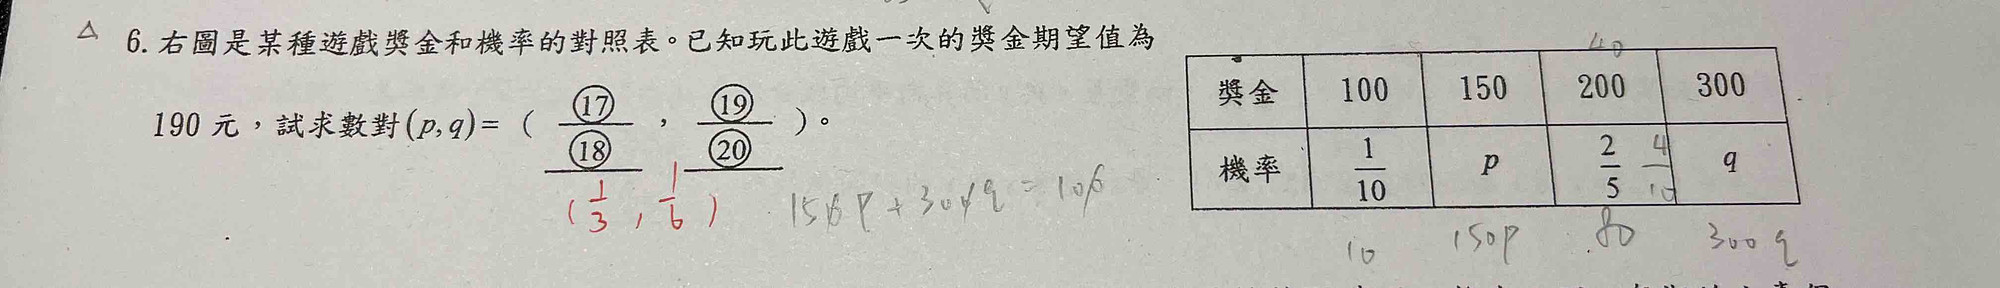 △ 6. 右圖是某種遊戲獎金和機率的對照表。已知玩此遊戲一次的獎金期望值為
190 元，試求數對(p,q)= ( ⑰/⑱ , ⑲/⑳ )。
(1/3, 1/6)
150p + 300q = 100
40
獎金 100 150 200 300
機率 1/10 p 2/5 4/10 q
10 150p 80 300q